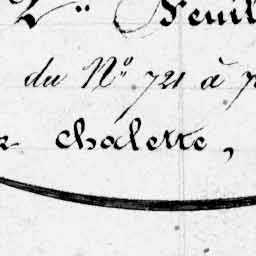 2.me Feuil
du N.o 721 à 7
chalette,